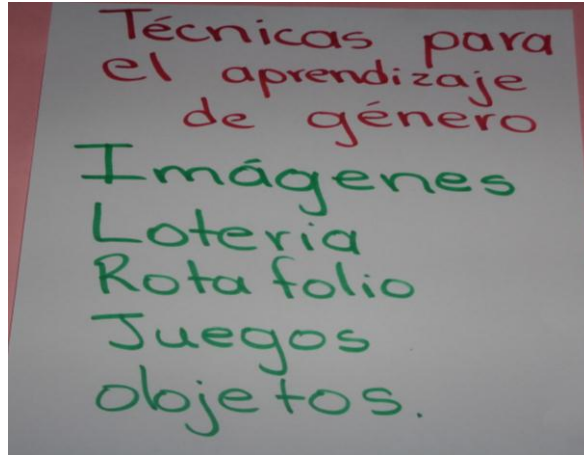 Técnicas para
el aprendizaje
de género
Imágenes
Loteria
Rotafolio
Juegos
objetos.